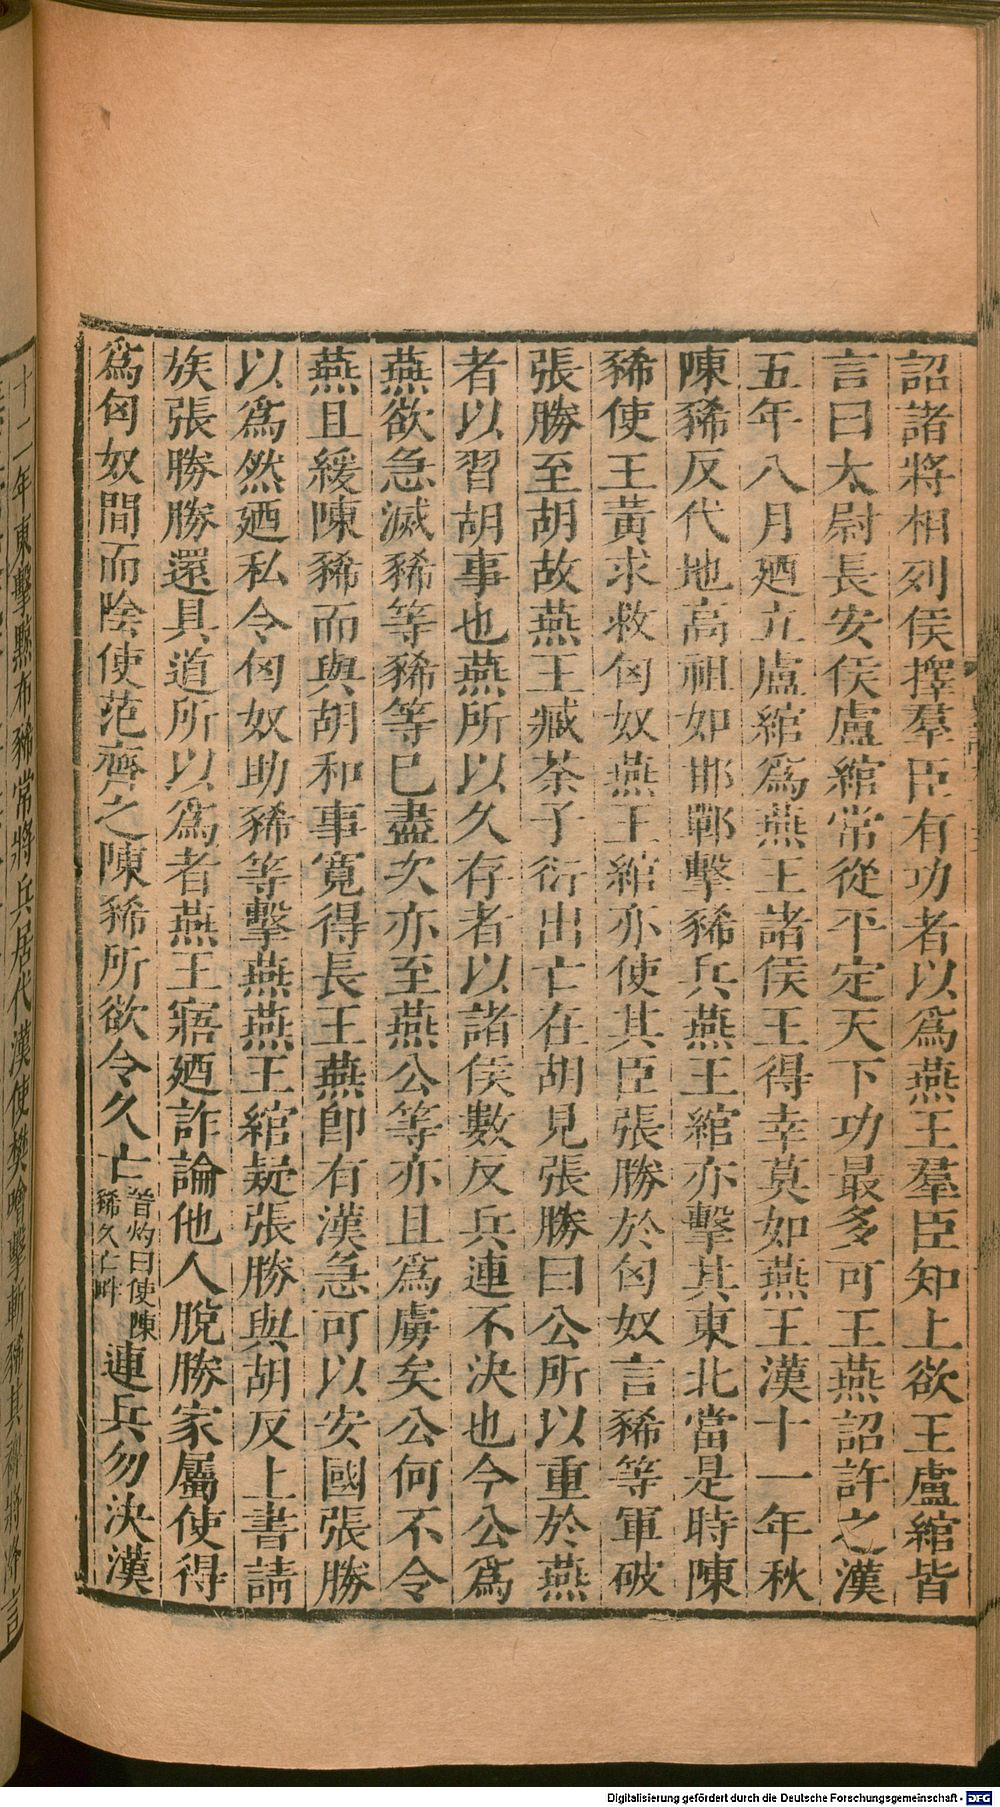 詔諸將相列侯擇羣臣有功者以爲燕王羣臣知上欲王盧綰皆
言曰太尉長安侯盧綰常從平定天下功最多可王燕詔許之漢
五年八月廼立盧綰爲燕王諸侯王得幸莫如燕王漢十一年秋
陳豨反代地高祖如邯鄲擊豨兵燕王綰亦擊其東北當是時陳
豨使王黃求救匈奴燕王綰亦使其臣張勝於匈奴言豨等軍破
張勝至胡故燕王臧荼子衍出亡在胡見張勝曰公所以重於燕
者以習胡事也燕所以久存者以諸侯數反兵連不決也今公爲
燕欲急滅豨等豨等已盡次亦至燕公等亦且爲虜矣公何不令
燕且緩陳豨而與胡和事寬得長王燕卽有漢急可以安國張勝
以爲然廼私令匈奴助豨等擊燕燕王綰疑張勝與胡反上書請
族張勝勝還具道所以爲者燕王寤廼詐論他人脫勝家屬使得
爲匈奴間而陰使范齊之陳豨所欲令久亡晉灼曰使陳豨久亡畔連兵勿決漢
十二年東擊黥布豨常將兵居代漢使樊噲擊斬豨其裨將降言
Digitalisierung gefördert durch die Deutsche Forschungsgemeinschaft - DFG